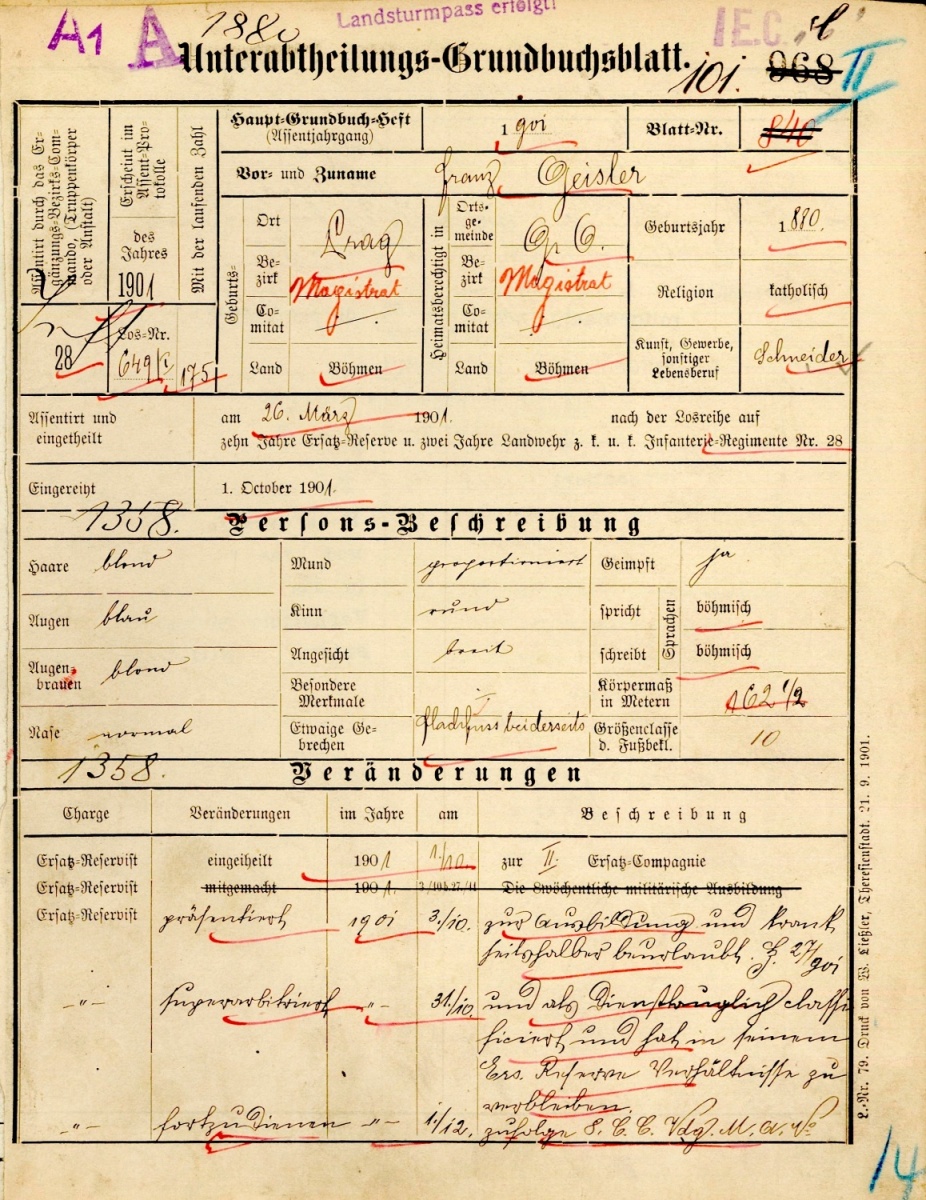 A1 A 1880 Landsturmpass erfolgt! I.E.C.
Unterabtheilungs-Grundbuchsblatt.
101. 968 II
Assentirt durch das Ergänzungs-Bezirks-Commando, (Truppenkörper oder Anstalt)
28
Erscheint im Assent-Protokolle
des Jahres
1901
Los-Nr.
649/I
Mit der laufenden Zahl
175
Haupt-Grundbuch-Heft
(Assentjahrgang)
1901
Blatt-Nr.
840
Vor- und Zuname
Franz Geisler
Geburts-
Ort
Prag
Bezirk
Magistrat
Comitat
Land
Böhmen
Heimatsberechtigt in
Ortsgemeinde
Bezirk
Magistrat
Comitat
Land
Böhmen
Geburtsjahr
1880.
Religion
katholisch
Kunst, Gewerbe,
sonstiger
Lebensberuf
Schneider
Assentirt und
eingetheilt
am 26. März 1901. nach der Losreihe auf
zehn Jahre Ersatz-Reserve u. zwei Jahre Landwehr z. k. u. k. Infanterie-Regimente Nr. 28
Eingereiht
1. October 1901.
1358. Persons-Beschreibung
Haare blond
Mund proportioniert
Geimpft ja
Augen blau
Kinn rund
Sprachen
spricht böhmisch
Angesicht breit
schreibt böhmisch
Augenbrauen blond
Besondere
Merkmale
Körpermaß
in Metern 162 1/2
Nase normal
Etwaige Gebrechen
flachfuss beiderseits
Größenclasse
d. Fußbekl. 10
1358. Veränderungen
Charge Veränderungen im Jahre am Beschreibung
Ersatz-Reservist eingetheilt 1901 1./10. zur II. Ersatz-Compagnie
Ersatz-Reservist mitgemacht 1901. 3/10 b. 27./11 Die 8wöchentliche militärische Ausbildung
Ersatz-Reservist präsentiert 1901 3./10. zur Ausbildung und krank
heitshalber beurlaubt. 27/901
-"- superarbitriert -"- 31./10. und als Diensttauglich classi
ficiert und hat in seinem
Ers. Reserve Verhältnisse zu
verbleiben.
-"- fortzudienen -"- 1/12. zufolge
L.-Nr. 79. Druck von W. Ließler, Theresienstadt. 21. 9. 1901.
14